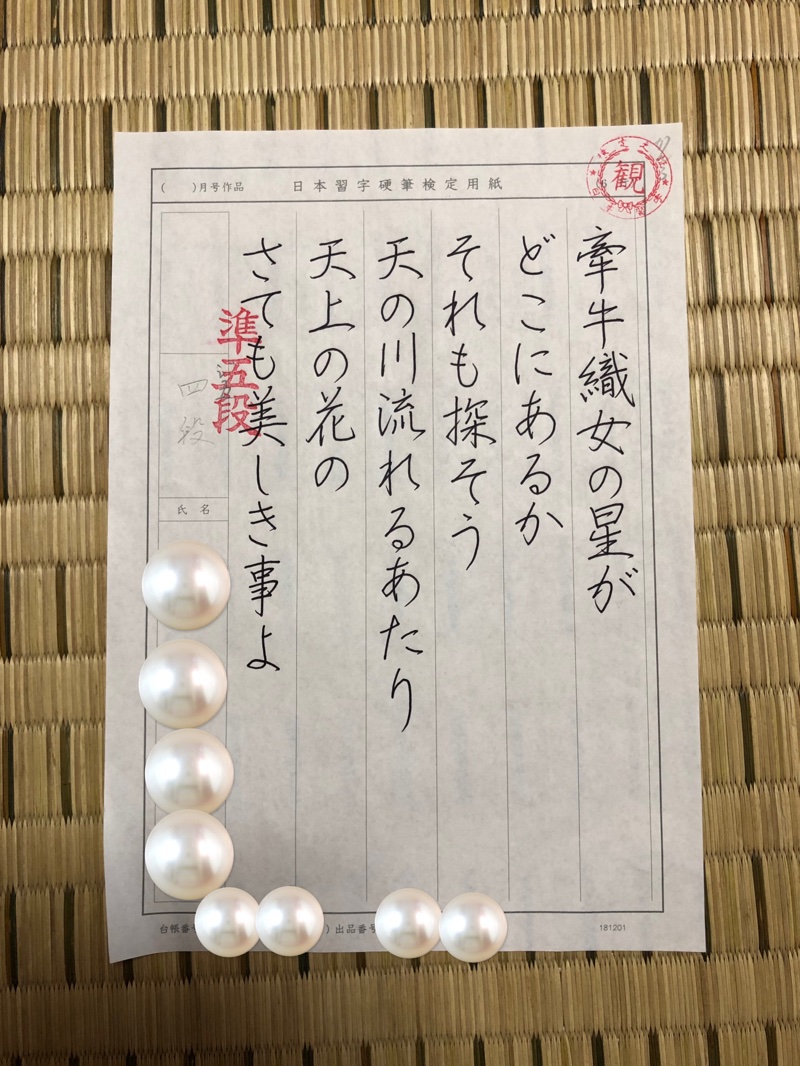 ( )月号作品 日本習字硬筆検定用紙
観
牽牛織女の星が
どこにあるか
それも探そう
天の川流れるあたり
天上の花の
さても美しき事よ
準五段
四段
氏名
台帳番
) 出品番号
181201